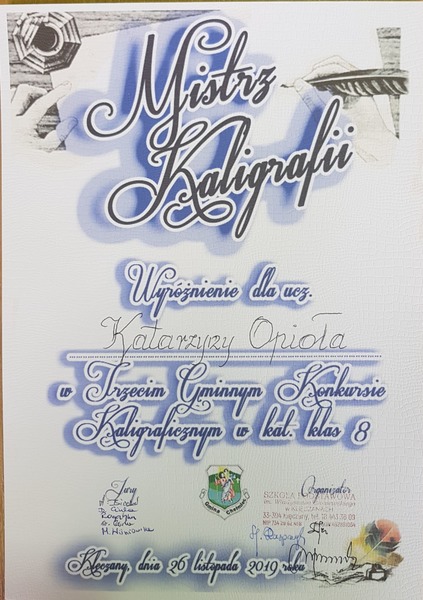 Mistrz
Kaligrafii
Wyróżnienie dla ucz.
Katarzyzy Opioła
w Trzecim Gminnym Konkursie
Kaligraficznym w kat. klas 8
Jury
Organizator
SZKOŁA PODSTAWOWA
Gmina Chełmiec
M. Wiśniowska
Klęczany, dnia 26 listopada 2019 roku